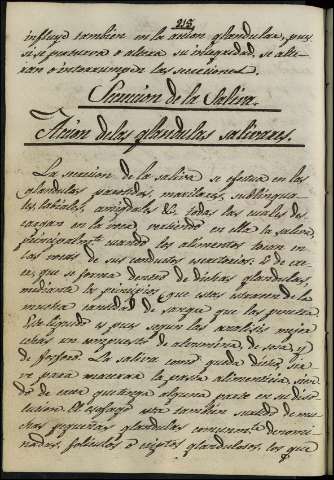 212,
influye tambien en la accion glandular, pues
si se perturva o altera su integridad, se alte-
ran o interrumpe las secreciones.
Secrecion de la Saliva.
Accion de las glandulas salivares.
La secrecion de la saliva se efectua en las
glandulas parotidas, maxilares, sublingua
les, labiales, amigdalas &. todas las cuales des-
cargan en la boca, vertiendo en ella la saliva
principalmte. cuando los alimentos tocan en
las bocas de sus conductos escretorios. Se cre-
e, que se forma dentro de dichas glandulas,
mediante los principios, que estas estraen de la
mucha cantidad de sangre que las penetra.
Este liquido es pues segun las analisis mejo-
res un compuesto de albumina de sosa y
de fosforo. La saliva como queda dicho, sir-
ve para macerar la pasta alimenticia, sien-
do de creer que tenga alguna parte en su diso-
lucion. El esofago esta tambien de mu-
chas pequeñas glandulas comunmte. denomi-
nadas, foliculos o criptas glandulosas, los que